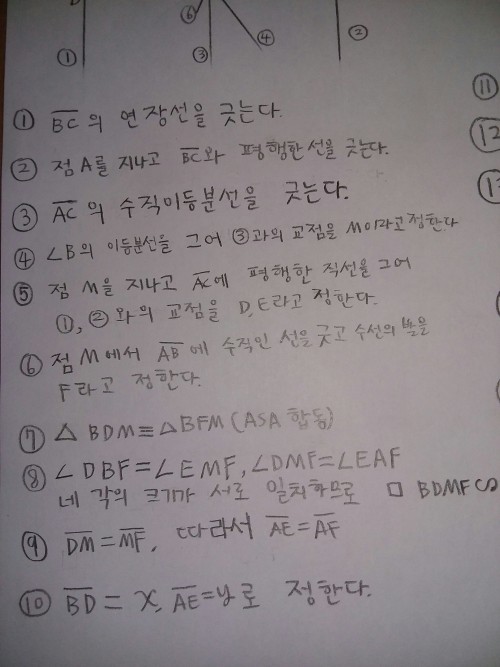 ⑥
①
③
④
②
⑪
⑫
① BC의 연장선을 긋는다.
② 점 A를 지나고 BC와 평행한 선을 긋는다.
③ AC의 수직이등분선을 긋는다.
④ ∠B의 이등분선을 그어 ③과의 교점을 M이라고 정한다
⑤ 점 M을 지나고 AC에 평행한 직선을 그어
①, ②와의 교점을 D, E라고 정한다.
⑥ 점 M에서 AB에 수직인 선을 긋고 수선의 발을
F라고 정한다.
⑦ △ BDM≡△BFM (ASA 합동)
⑧ ∠DBF=∠EMF, ∠DMF=∠EAF
네 각의 크기가 서로 일치하므로 □ BDMF∽
⑨ DM=MF, 따라서 AE=AF
⑩ BD = x, AE=y로 정한다.